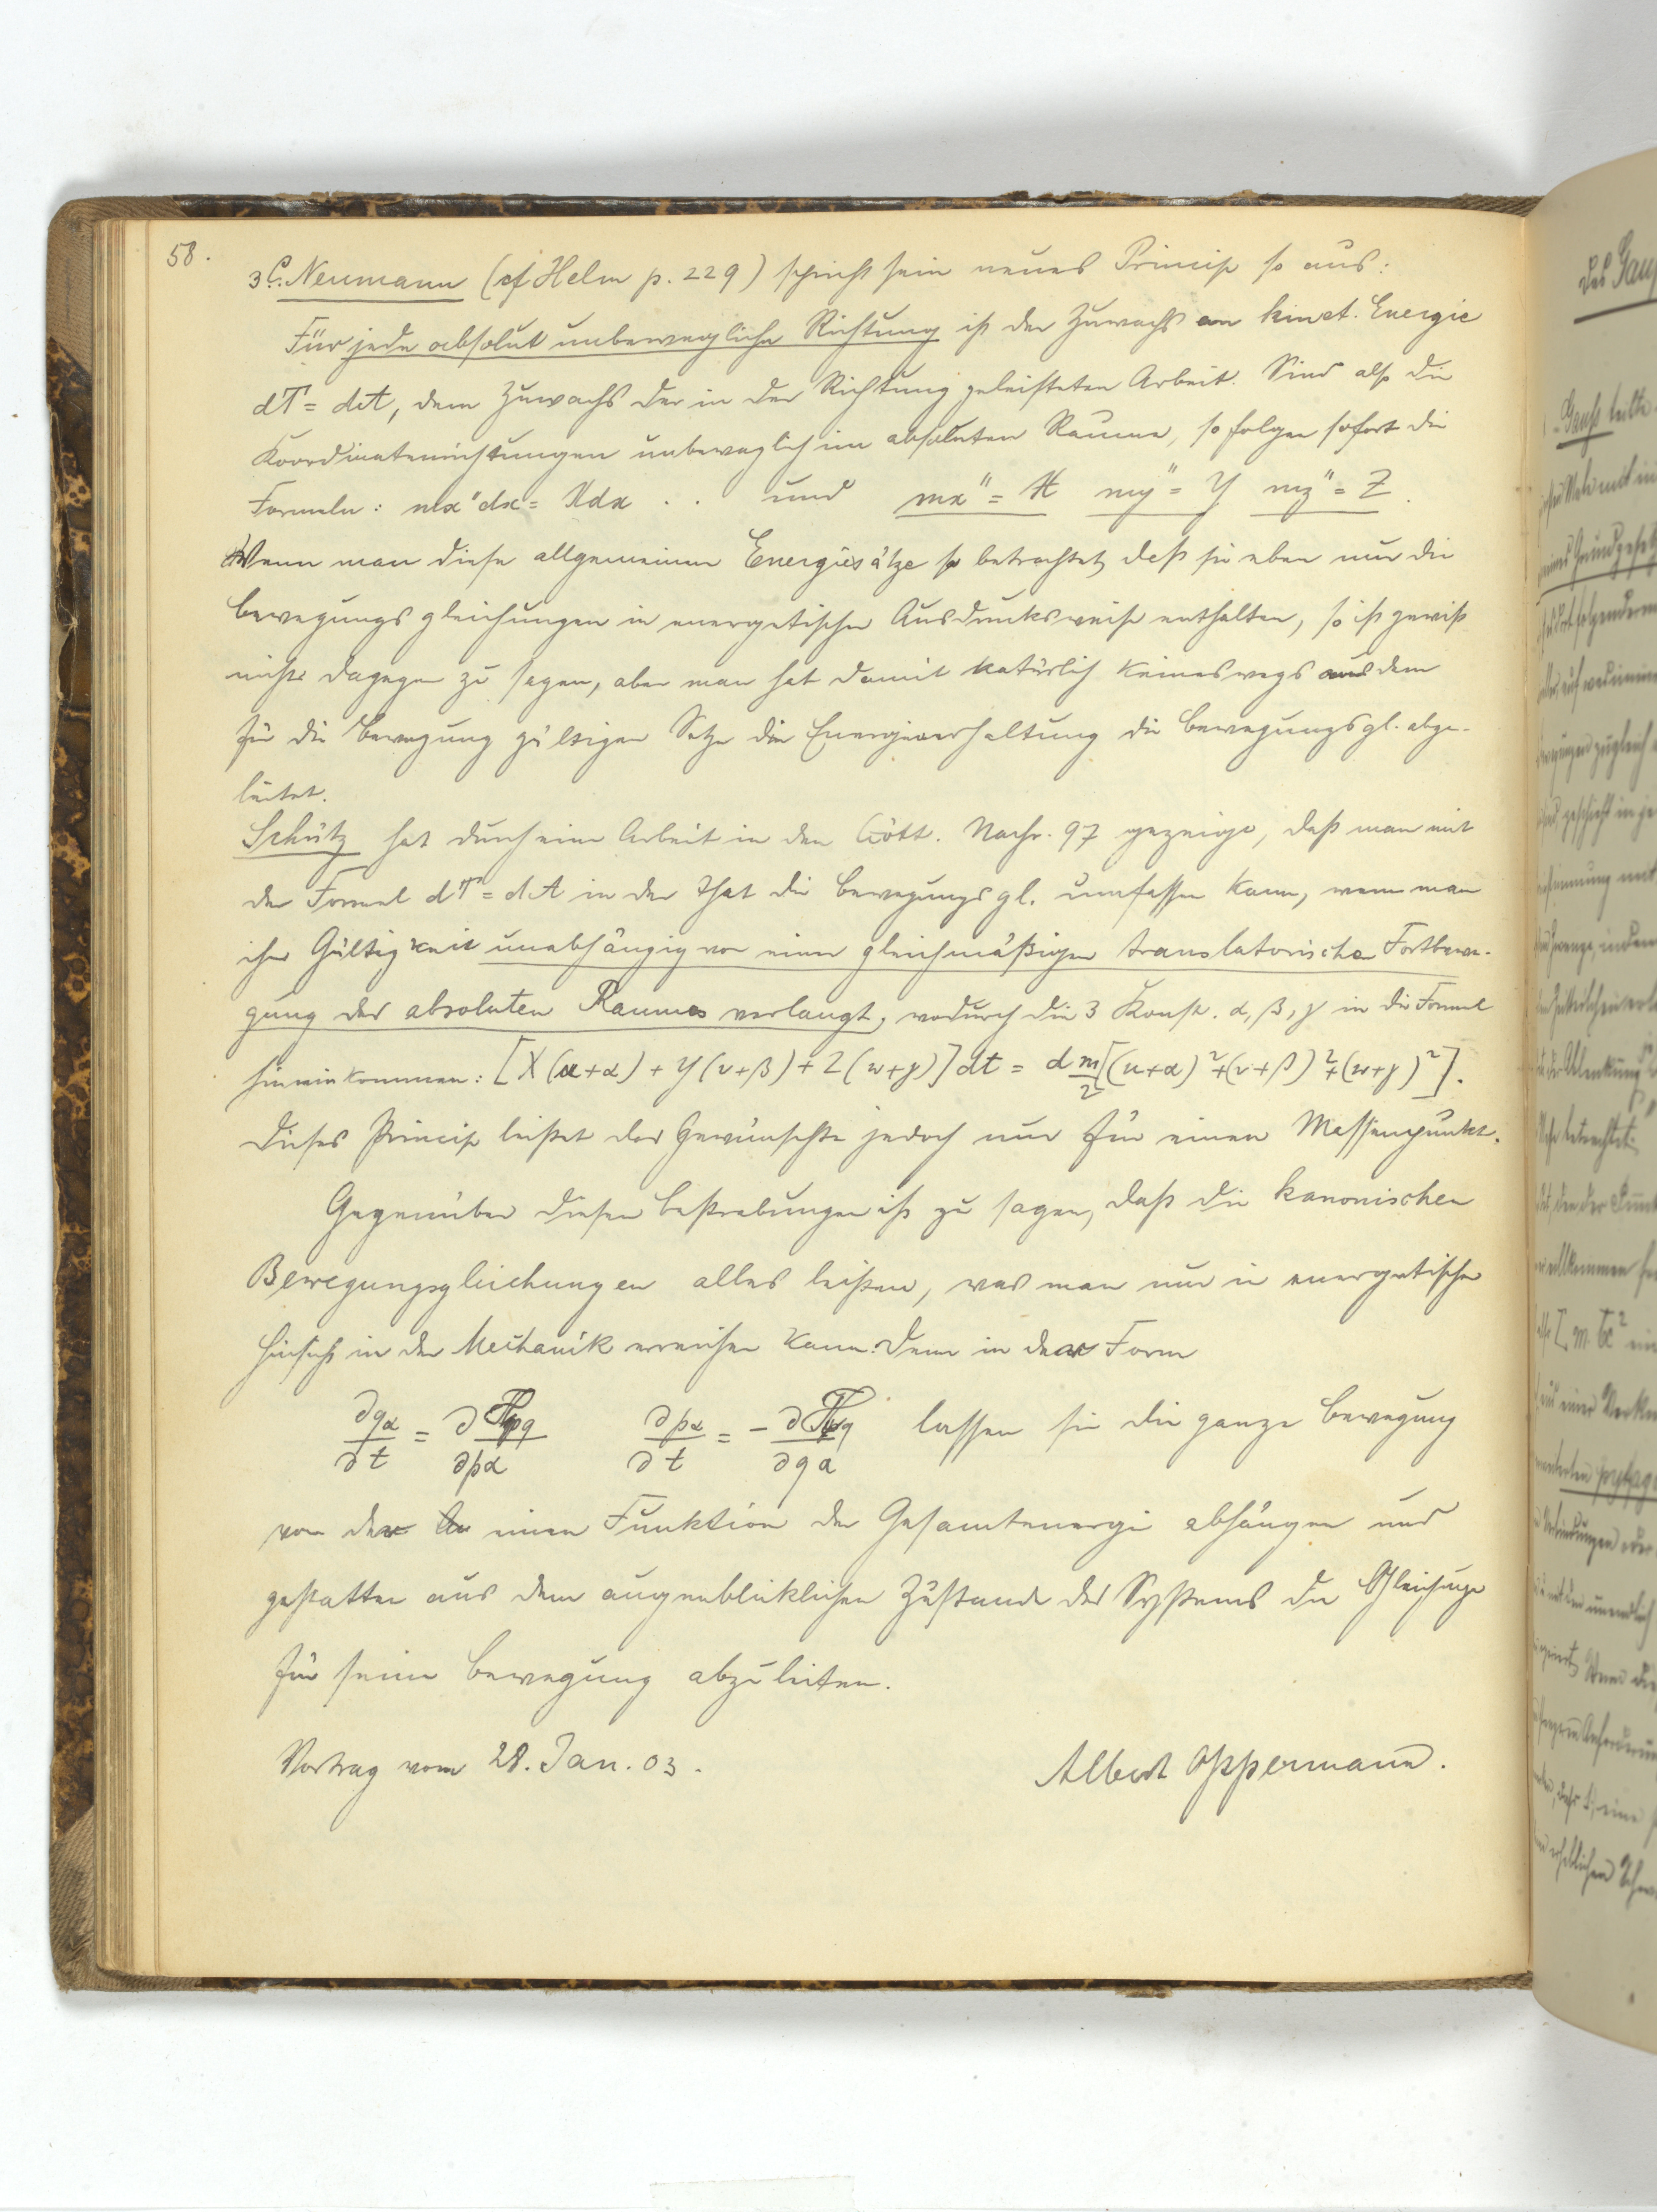 58.
3 C. Neumann (cf Helm p. 229) spricht sein neues Princip so aus:
Für jede absolut unbewegliche Richtung ist der Zuwachs an kinet. Energie
dT = dA, dem Zuwachs der in der Richtung geleisteten Arbeit. Sind also die
Koordinatenrichtungen unbeweglich im absoluten Raume, so folgen sofort die
Formeln: mx''dx = Xdx . . und mx'' = X my'' = Y mz'' = Z.
Wenn man diese allgemeinen Energiesätze so betrachtet, daß sie eben nur die
Bewegungsgleichungen in energetischer Ausdrucksweise enthalten, so ist gewiß
nichts dagegen zu sagen, aber man hat damit natürlich keineswegs aus dem
für die Bewegung gültigen Satze der Energieerhaltung die Bewegungsgl. abge-
leitet.
Schütz hat durch eine Arbeit in den Gött. Nachr. 97 gezeigt, daß man mit
der Formel dT = dA in der That die Bewegungsgl. umfassen kann, wenn man
ihre Gültigkeit unabhängig von einer gleichmäßigen translatorischen Fortbewe-
gung des absoluten Raumes verlangt, wodurch die 3 Konst. α, β, γ in die Formel
hineinkommen: [X(u+α) + Y(v+β) + Z(w+γ)] dt = d m/2 [(u+α)² + (v+β)² + (w+γ)²].
Dieses Princip leistet das Gewünschte jedoch nur für einen Massenpunkt.
Gegenüber diesen Bestrebungen ist zu sagen, daß die kanonischen
Bewegungsgleichungen alles leisten, was man nur in energetischer
Hinsicht in der Mechanik erreichen kann. Denn in der Form
∂qα/∂t = ∂Tpq/∂pα ∂pα/∂t = - ∂Tpq/∂qα lassen sie die ganze Bewegung
von der einen Funktion der Gesamtenergie abhängen und
gestatten aus dem augenblicklichen Zustande des Systems die Gleichunge
für seine Bewegung abzuleiten.
Vortrag vom 28. Jan. 03.
Albert Oppermann.